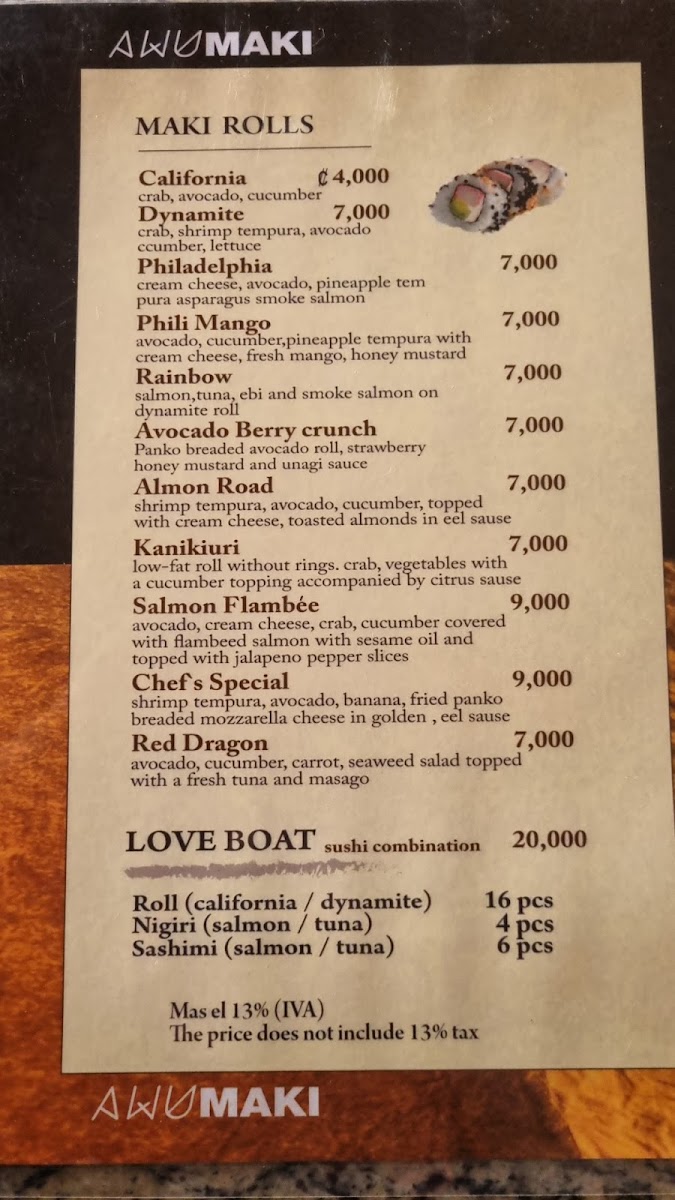 AWUMAKI
MAKI ROLLS
California ₡4,000
crab, avocado, cucumber
Dynamite 7,000
crab, shrimp tempura, avocado
ccumber, lettuce
Philadelphia 7,000
cream cheese, avocado, pineapple tem
pura asparagus smoke salmon
Phili Mango 7,000
avocado, cucumber,pineapple tempura with
cream cheese, fresh mango, honey mustard
Rainbow 7,000
salmon,tuna, ebi and smoke salmon on
dynamite roll
Avocado Berry crunch 7,000
Panko breaded avocado roll, strawberry
honey mustard and unagi sauce
Almon Road 7,000
shrimp tempura, avocado, cucumber, topped
with cream cheese, toasted almonds in eel sause
Kanikiuri 7,000
low-fat roll without rings. crab, vegetables with
a cucumber topping accompanied by citrus sause
Salmon Flambée 9,000
avocado, cream cheese, crab, cucumber covered
with flambeed salmon with sesame oil and
topped with jalapeno pepper slices
Chef's Special 9,000
shrimp tempura, avocado, banana, fried panko
breaded mozzarella cheese in golden , eel sause
Red Dragon 7,000
avocado, cucumber, carrot, seaweed salad topped
with a fresh tuna and masago
LOVE BOAT sushi combination 20,000
Roll (california / dynamite) 16 pcs
Nigiri (salmon / tuna) 4 pcs
Sashimi (salmon / tuna) 6 pcs
Mas el 13% (IVA)
The price does not include 13% tax
AWUMAKI